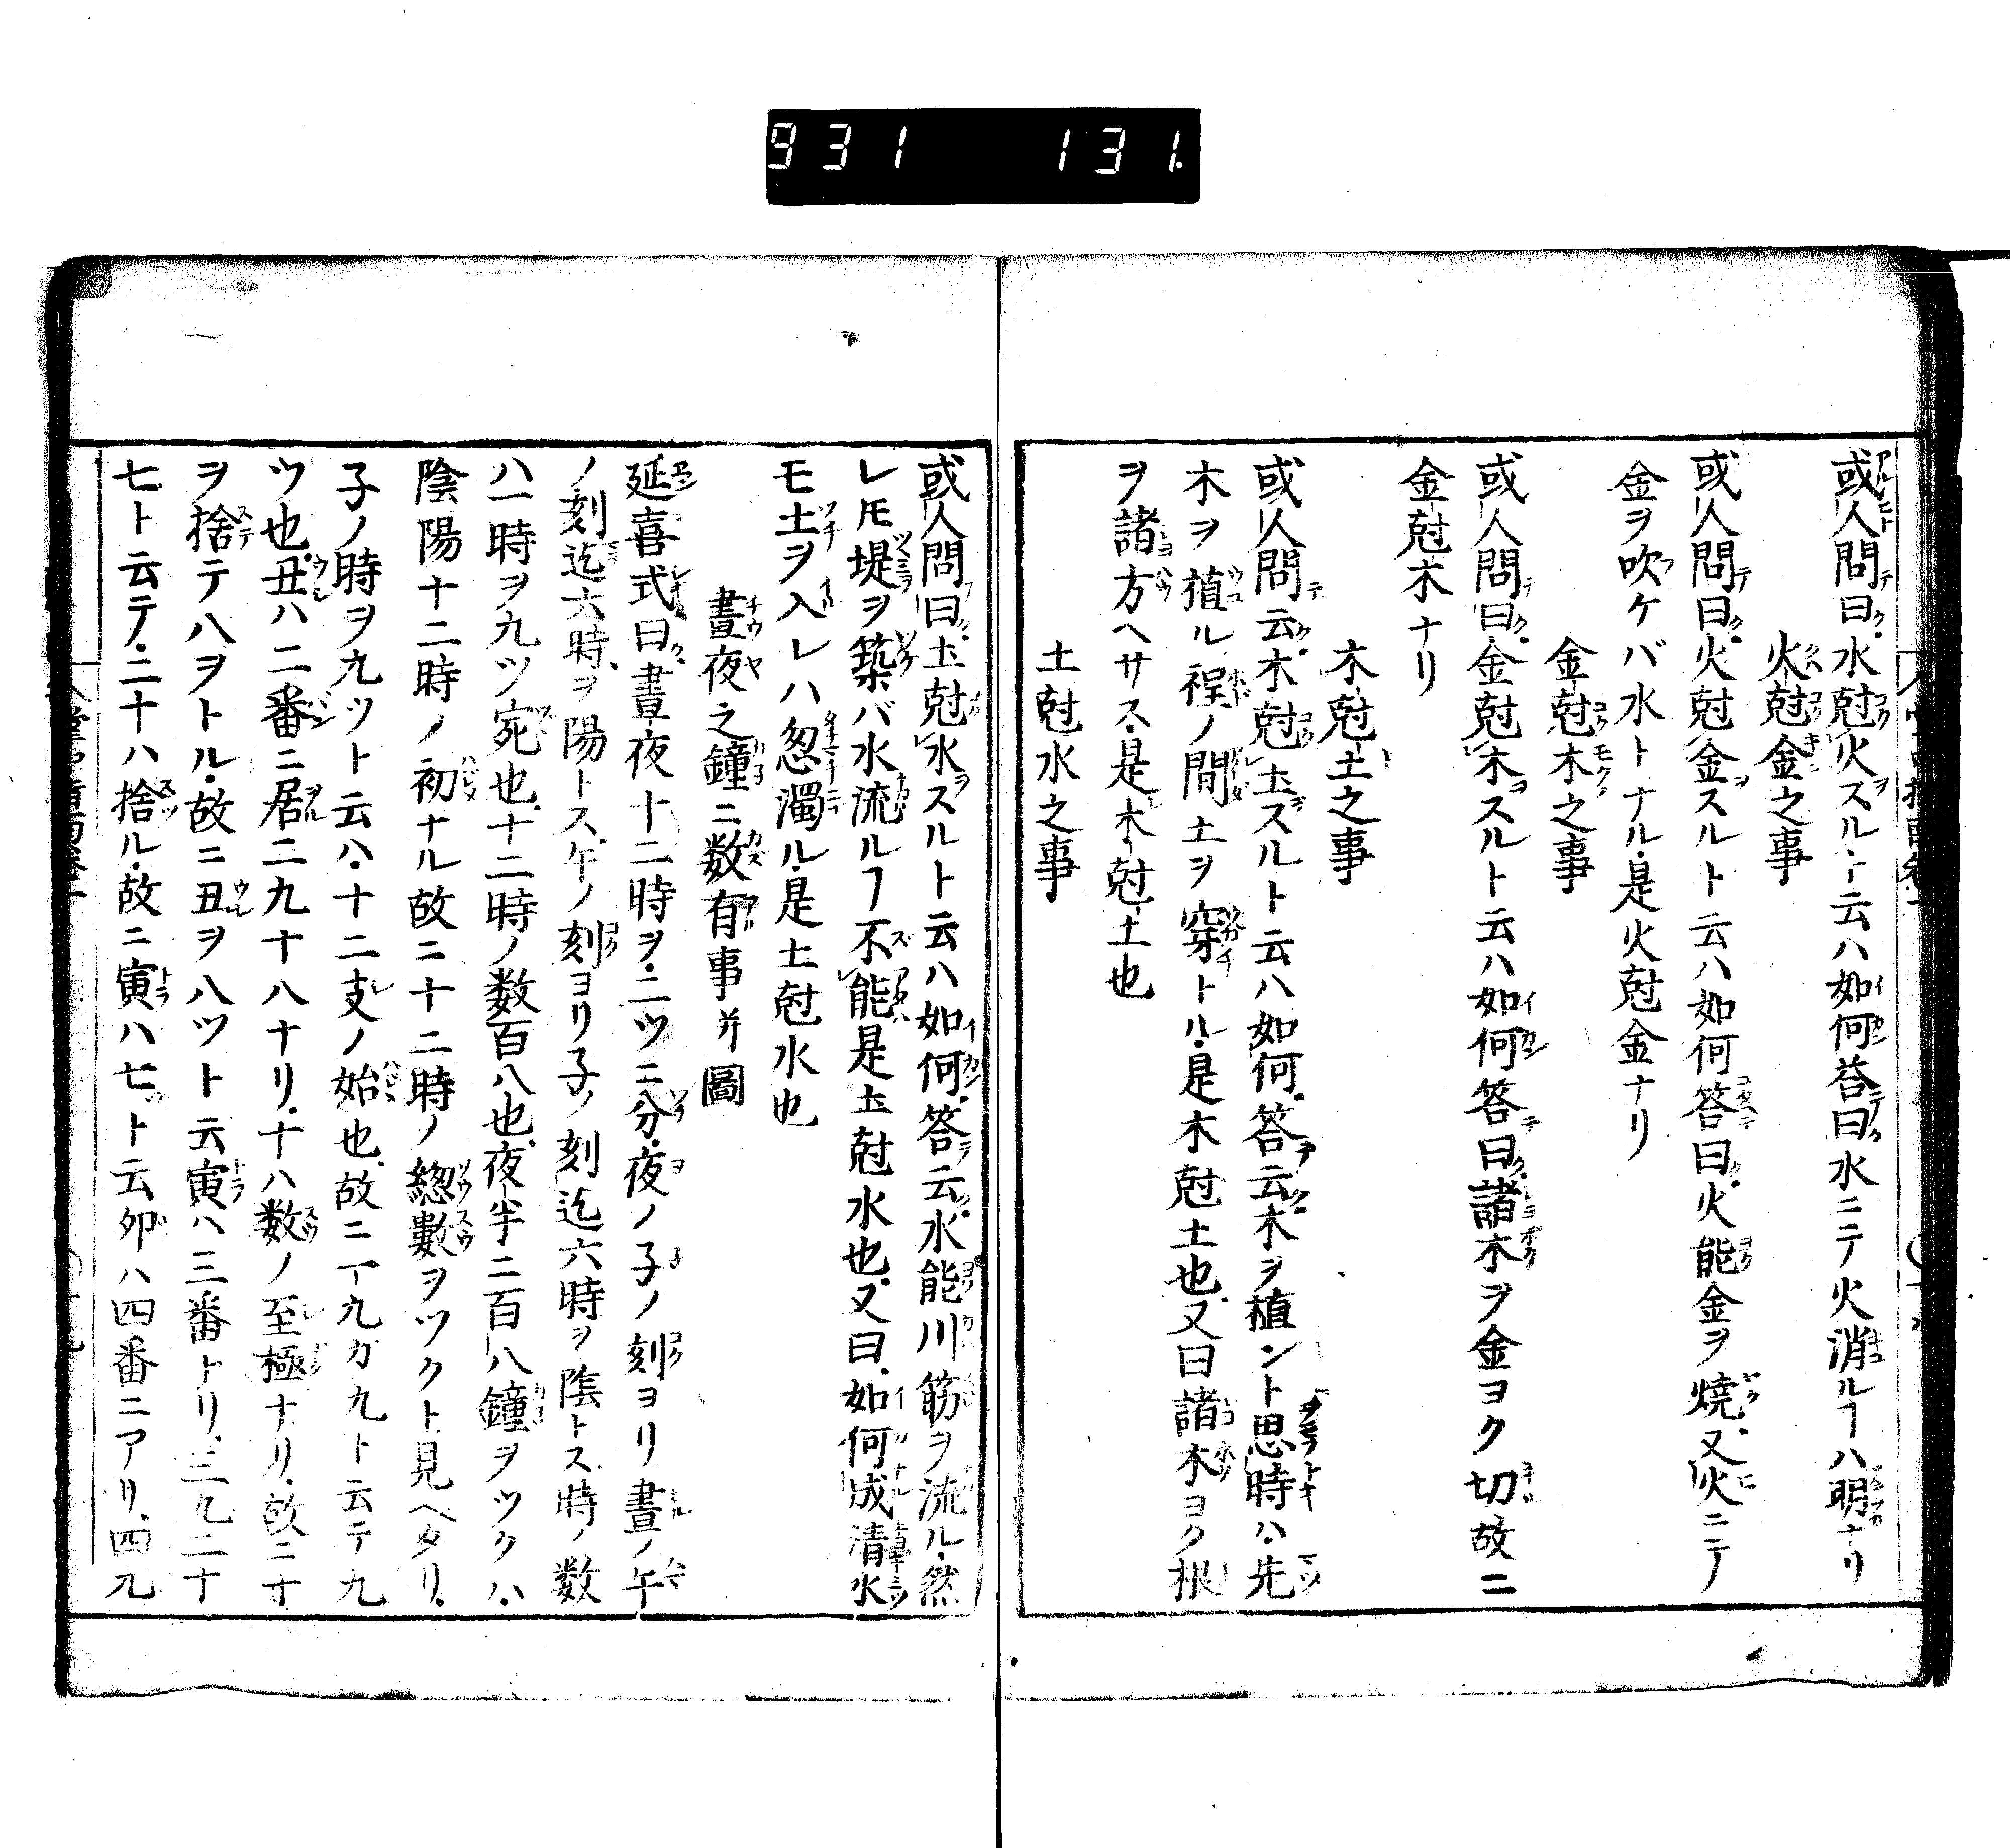 931 131
或人問曰水尅火スルト云ハ如何答曰水ニテ火消ルヿハ明ナリ
火尅金之事
或人問曰火尅金スルト云ハ如何答曰火能金ヲ焼又火ニテ
金ヲ吹ケバ水トナル是火尅金ナリ
金尅木之事
或人問曰金尅木スルト云ハ如何答曰諸木ヲ金ヨク切故ニ
金尅木ナリ
木尅土之事
或人問云木尅土スルト云ハ如何答云木ヲ植ント思時ハ先
木ヲ植ル程ノ間土ヲ穿トル是木尅土也又曰諸木ヨク根
ヲ諸方ヘサス是木尅土也
土尅水之事
或人問曰土尅水スルト云ハ如何答云水能川筋ヲ流ル然
レ𪜈堤ヲ築バ水流ルヿ不能是土尅水也又曰如何成清水
モ土ヲ入レハ忽濁ル是土尅水也
晝夜之鐘ニ数有事并圖
延喜式曰晝夜十二時ヲ二ツニ分夜ノ子ノ刻ヨリ晝ノ午
ノ刻迄六時ヲ陽トス午ノ刻ヨリ子ノ刻迄六時ヲ陰トス時ノ数
ハ一時ヲ九ツ宛也十二時ノ数百八也夜半ニ百八鐘ヲツクハ
陰陽十二時ノ初ナル故ニ十二時ノ総數ヲツクト見ヘタリ
子ノ時ヲ九ツト云ハ十二支ノ始也故ニ一九ガ九ト云テ九
ツ也丑ハ二番ニ居二九十八ナリ十ハ数ノ至極ナリ故ニ十
ヲ捨テ八ヲトル故ニ丑ヲ八ツト云寅ハ三番トリ三九二十
七ト云テ二十ハ捨ル故ニ寅ハ七ット云卯ハ四番ニアリ四九